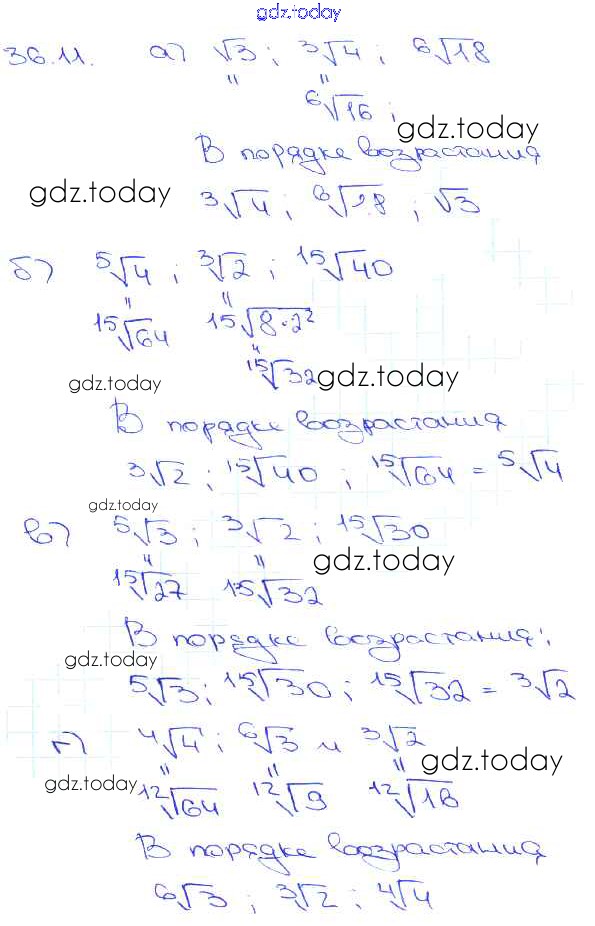 gdz.today
36.11. а) √3 ; ³√4 ; ⁶√18
" "
⁶√16 ;
gdz.today
В порядке возрастания
gdz.today
³√4 ; ⁶√18 ; √3
б) ⁵√4 ; ³√2 ; ¹⁵√40
" "
¹⁵√64 ¹⁵√8·2²
"
¹⁵√32
gdz.today
gdz.today
В порядке возрастания
³√2 ; ¹⁵√40 ; ¹⁵√64 = ⁵√4
gdz.today
в) ⁵√3 ; ³√2 ; ¹⁵√30
" "
gdz.today
¹⁵√27 ¹⁵√32
В порядке возрастания:
gdz.today
⁵√3 ; ¹⁵√30 ; ¹⁵√32 = ³√2
г) ⁴√4 ; ⁶√3 и ³√2
" " "
gdz.today
gdz.today
¹²√64 ¹²√9 ¹²√16
В порядке возрастания
⁶√3 ; ³√2 ; ⁴√4